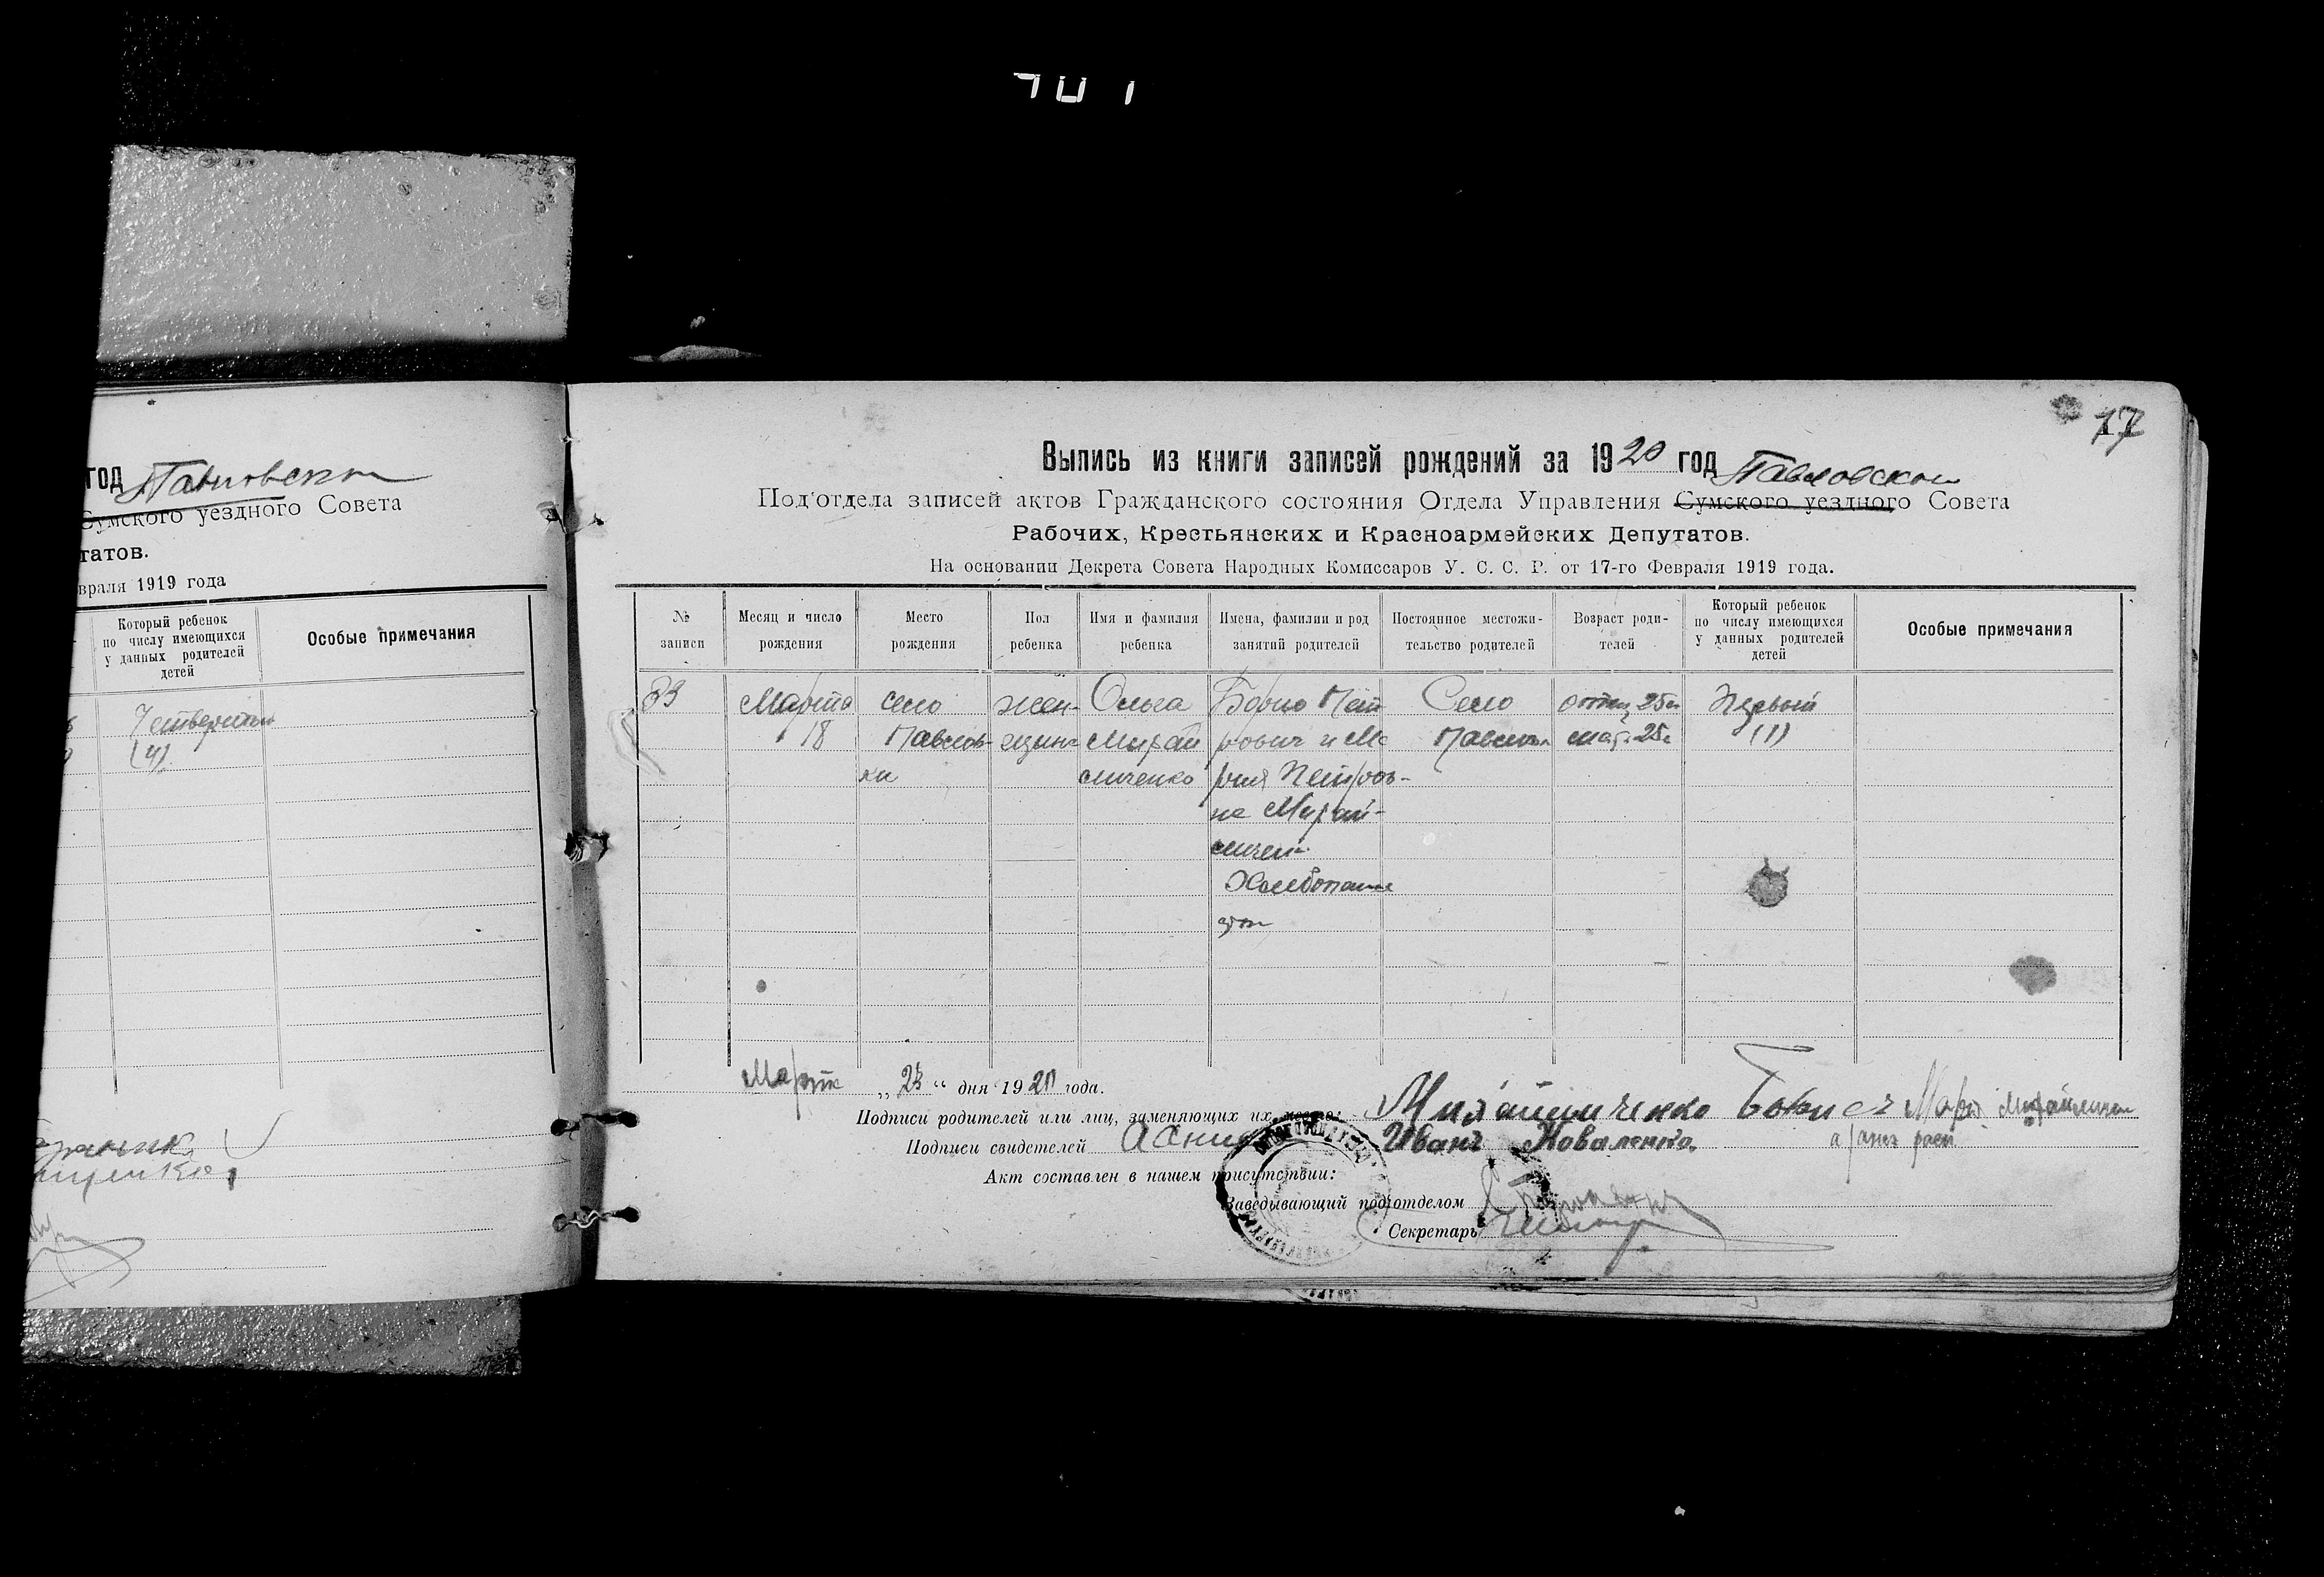 год Павловской
Сумского уездного Совета
татов.
враля 1919 года
Который ребенок
по числу имеющихся
у данных родителей
детей
Особые примечания
Четвертый
(4)
17
Выпись из книги записей рождений за 1920 год Павловской
Под'отдела записей актов Гражданского состояния Отдела Управления Сумского уездного Совета
Рабочих, Крестьянских и Красноармейских Депутатов.
На основании Декрета Совета Народных Комиссаров У. С. С. Р. от 17-го Февраля 1919 года.
№ записи
Месяц и число рождения
Место рождения
Пол ребенка
Имя и фамилия ребенка
Имена, фамилии и род занятий родителей
Постоянное местожи-тельство родителей
Возраст роди-телей
Который ребенок по числу имеющихся у данных родителей детей
Особые примечания
83
Марта
18
село
Павлов-
ки
жен-
щина
Ольга
Михай
личенко
Борис Пет
рович и Ма
рия Петров-
на Михай-
личен
Хлебопаш
цы
Село
Павловки
отец 25 л
мать 25 л
Первый
(1)
Марта „23“ дня 1920 года.
Подписи родителей или лиц, заменяющих их место: Михайличенко Борис Мария Михайличен
Подписи свидетелей Иванъ Коваленко.
Акт составлен в нашем присутствии:
Заведывающий под'отделом
Секретарь